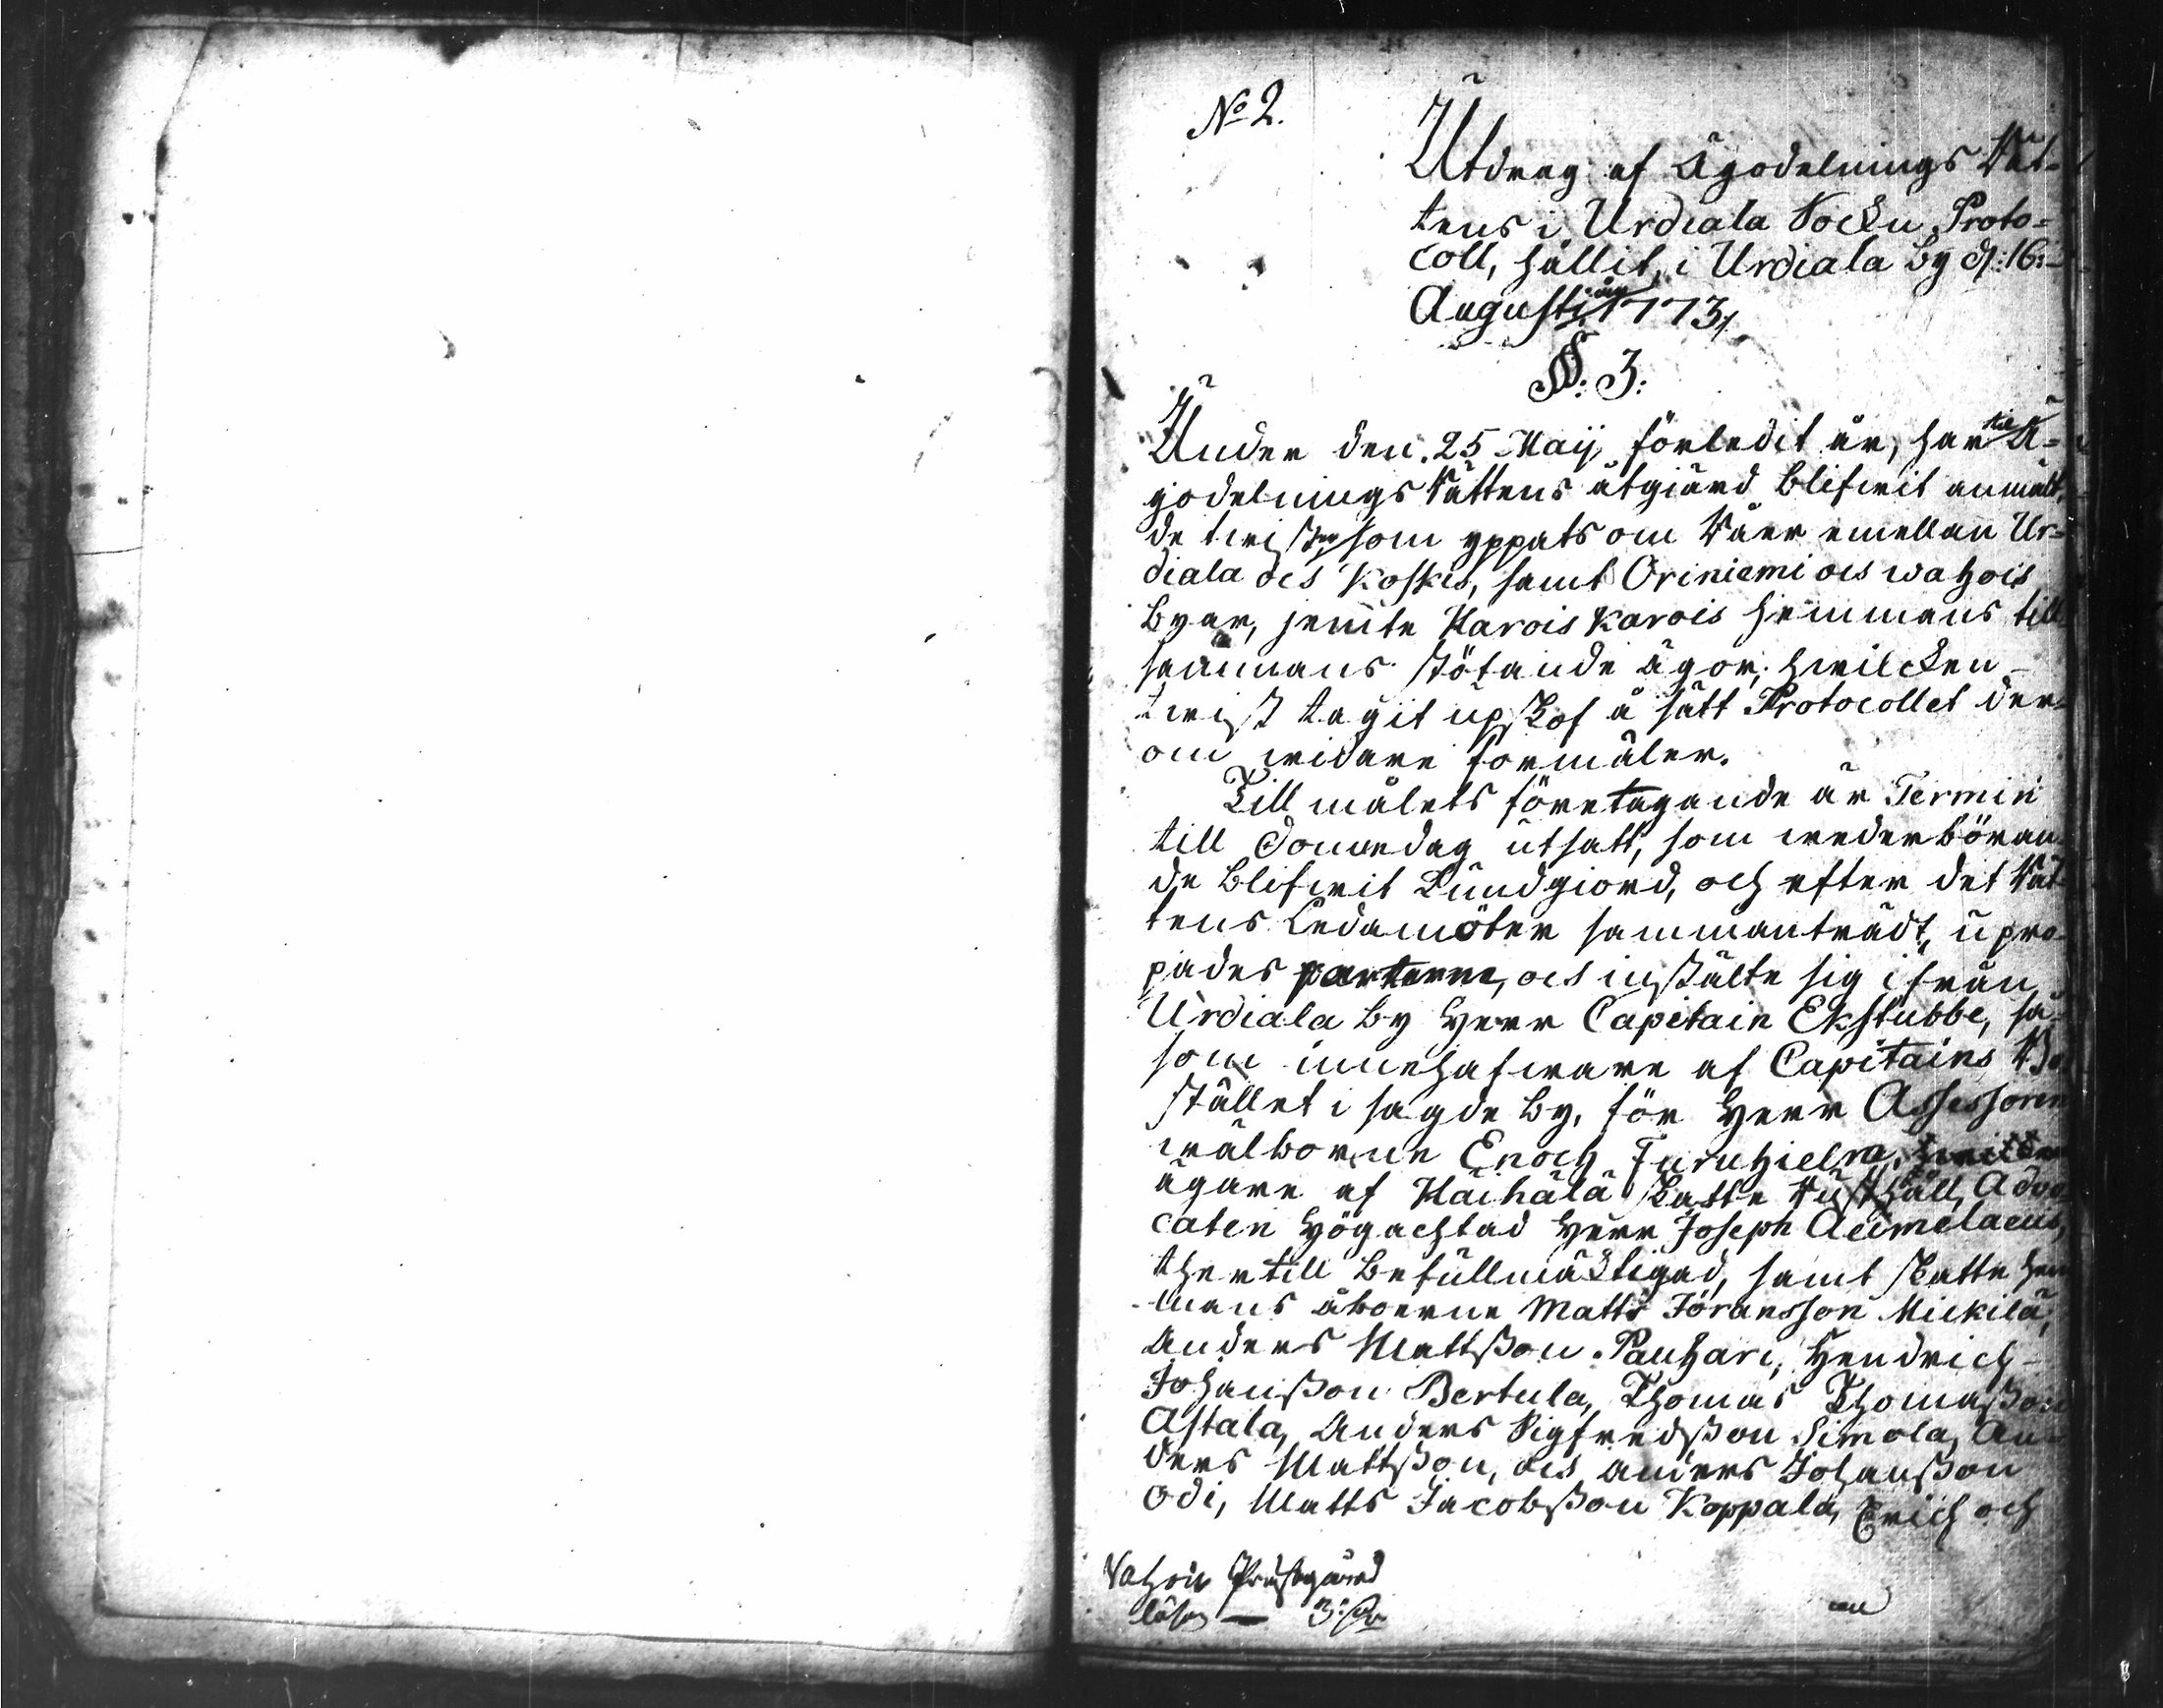 No 2.
Utdrag af Ägodelnings Rät-
tens i Urdiala Sockn Proto-
coll, hållit i Urdiala By d: 16:
Augusti år 1773.
§: 3:
Under den 25 Maij förledit år, har til Ä-
godelnings Rättens åtgiärd blifwit anmält,
de twister som yppats om Råer emellan Ur-
diala och Koskis, samt Oriniemi och wahois
byar, jemte Harois Karois hemmans till
sammans stötande ägor, hwilcken
twist tagit upskof å sätt Protocollet der-
om widare förmäler.
Till målets företagande är Termin
till Donnedag utsatt, som wederböran-
de blifwit kundgiord, och efter det Rät-
tens Ledamöter sammanträdt, upro-
pades parterne, och instälte sig ifrån
Urdiala by Herr Capitain Ekstubbe, så-
som innehafware af Capitains Bo-
stället i sagde by, för Herr Assessoren
wälborne Enoch Furuhielm,
ägare af Häihälä Skatte Rusthåll, Advo-
caten Högachtad Herr Joseph Aeimelaeus,
ther till befullmäktigad, samt skatte hem
mans åboerne Matts Jöransson Mickilä,
Anders Mattsson Pauhari, Hendrich
Johansson Bertula, Thomas Thomasson
Astala, Anders Sigfredsson Simola, An-
ders Mattsson, och Anders Johansson
Odi, Matts Jacobsson Koppala, Erich och
Vahois Prästgård
lösn — 3:
an